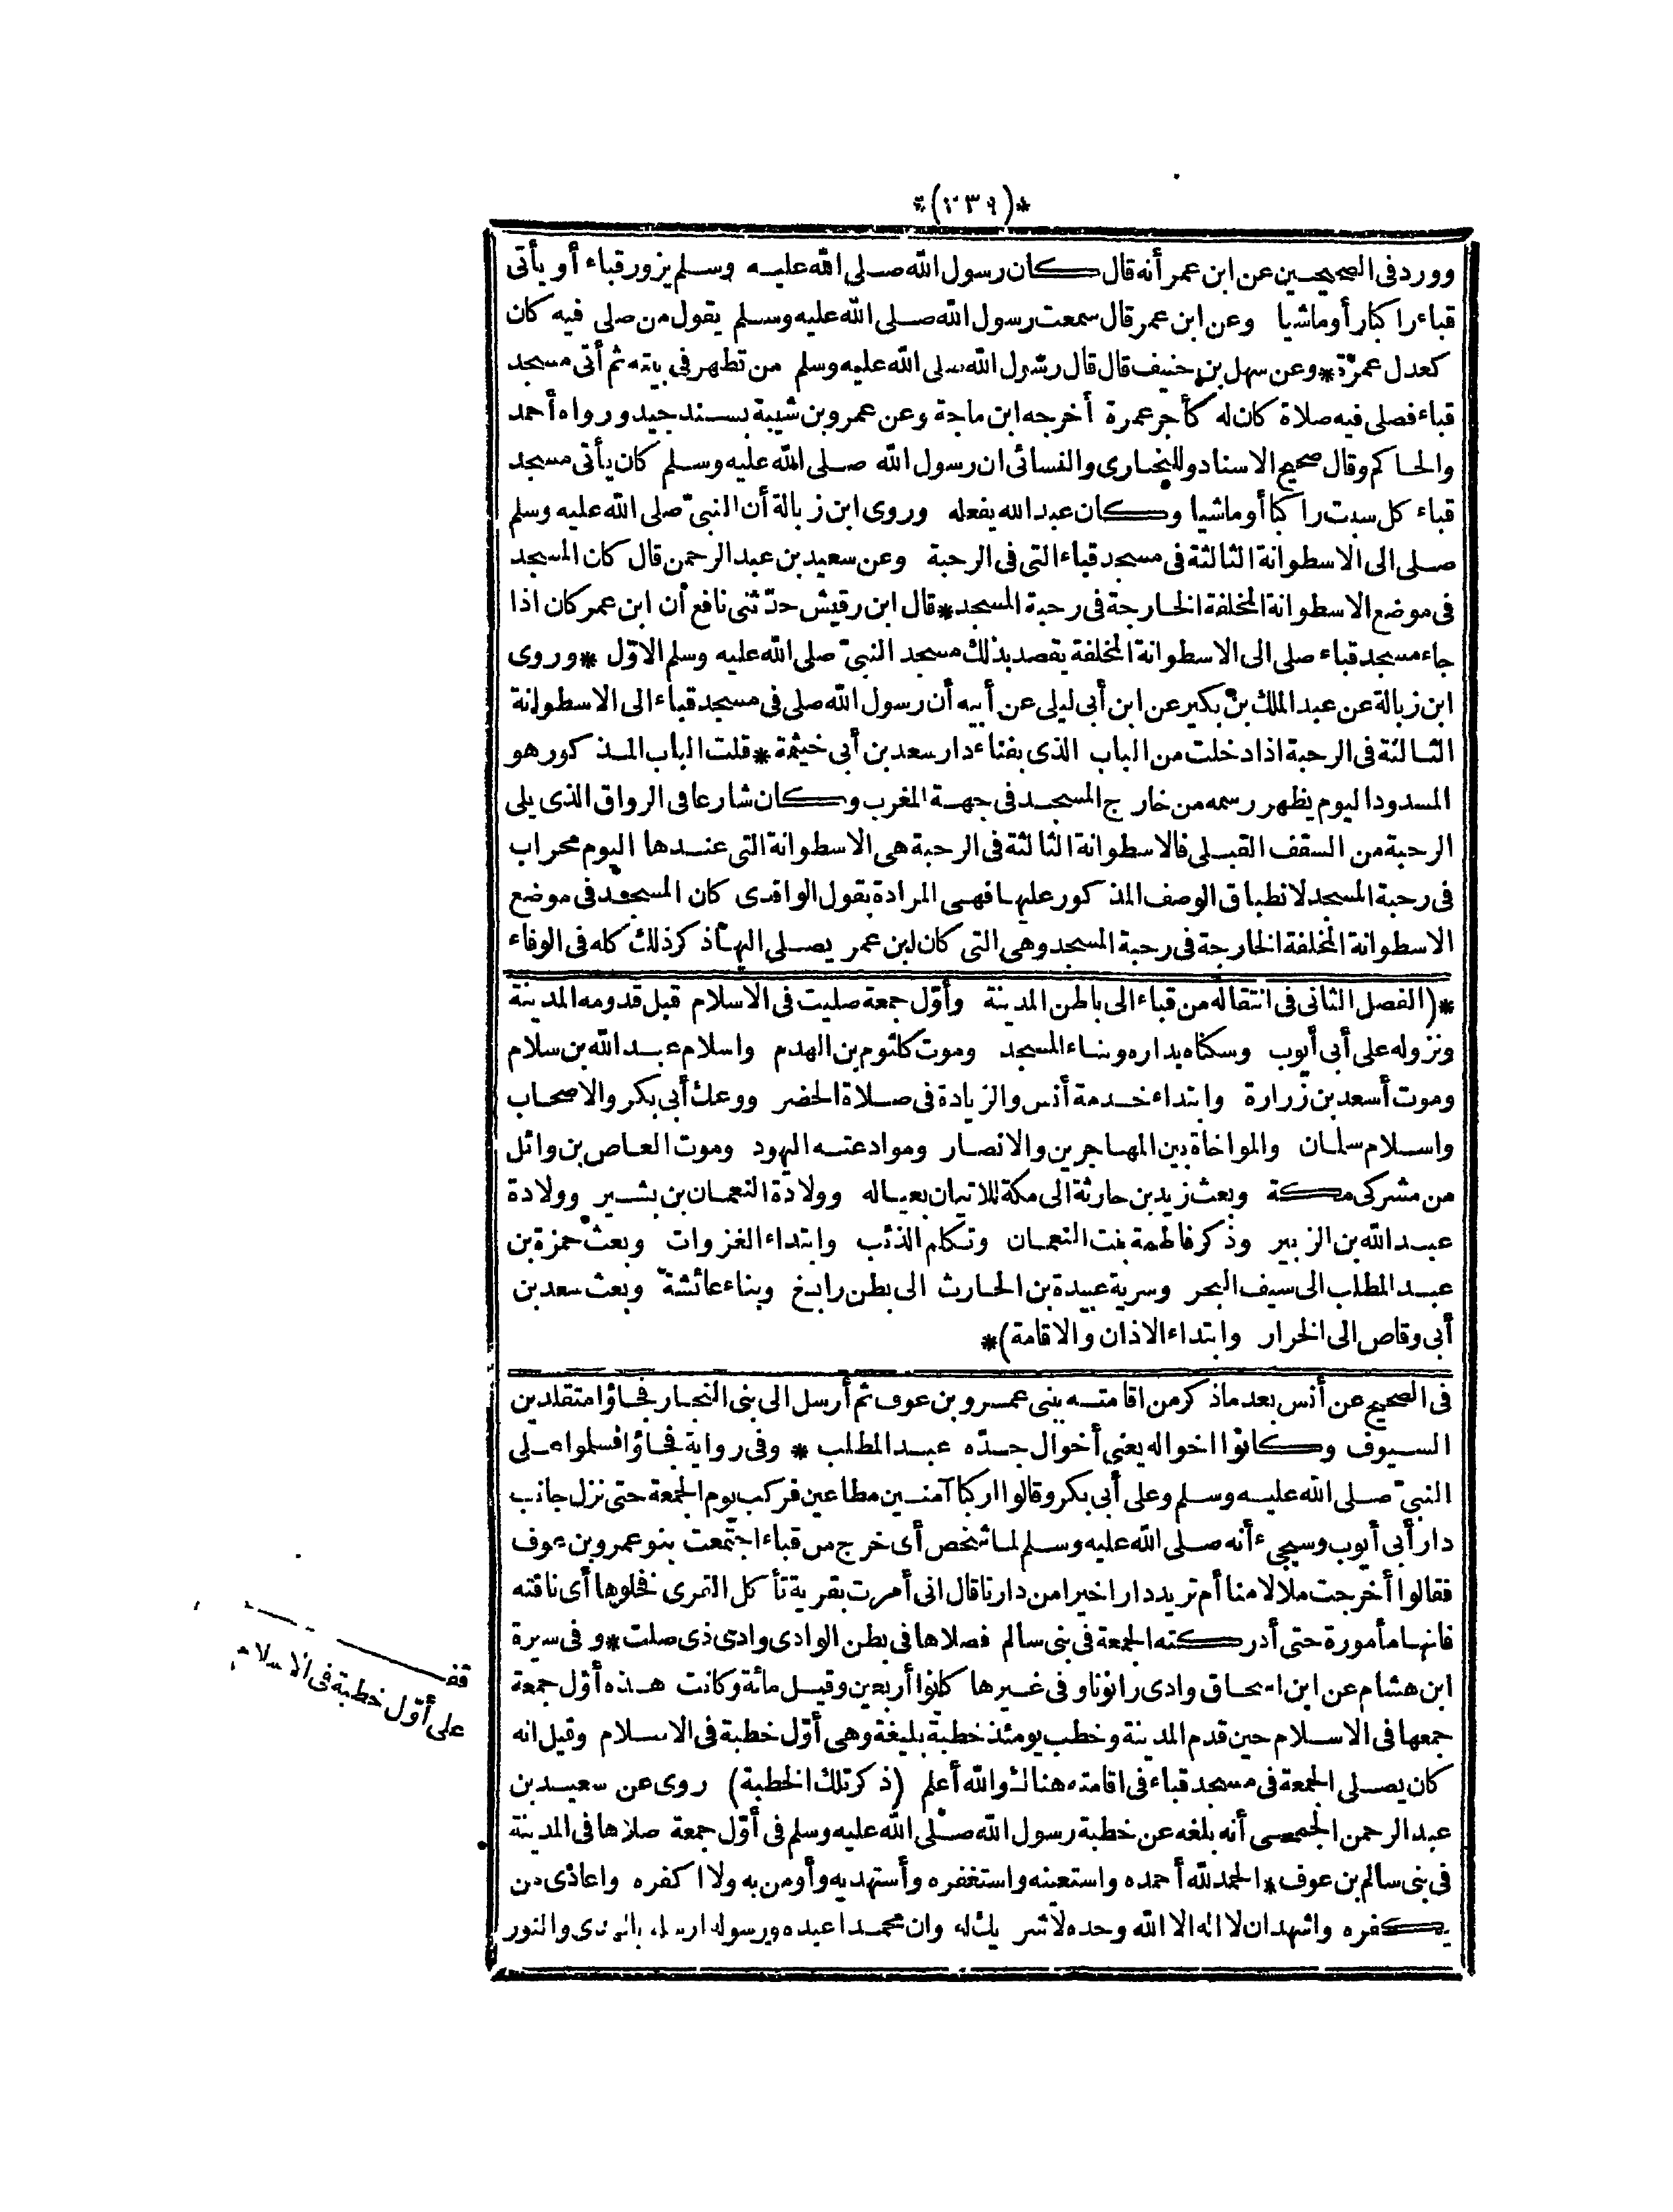 *(٣٣٩)*
وورد فى الصحيحين عن ابن عمر أنه قال كان رسول الله صلى الله عليه وسلم يزور قباء أو يأتى
قباء راكبا أو ماشيا وعن ابن عمر قال سمعت رسول الله صلى الله عليه وسلم يقول من صلى فيه كان
كعدل عمرة * وعن سهل بن حنيف قال قال رسول الله صلى الله عليه وسلم من تطهر فى بيته ثم أتى مسجد
قباء فصلى فيه صلاة كان له كأجر عمرة أخرجه ابن ماجة وعن عمرو بن شيبة بسند جيد ورواه أحمد
والحاكم وقال صحيح الاسناد وللبخارى والنسائى ان رسول الله صلى الله عليه وسلم كان يأتى مسجد
قباء كل سبت راكبا أو ماشيا وكان عبد الله يفعله وروى ابن زبالة أن النبىّ صلى الله عليه وسلم
صلى الى الاسطوانة الثالثة فى مسجد قباء التى فى الرحبة وعن سعيد بن عبد الرحمن قال كان المسجد
فى موضع الاسطوانة المخلقة الخارجة فى رحبة المسجد * قال ابن رقيش حدّثنى نافع أن ابن عمر كان اذا
جاء مسجد قباء صلى الى الاسطوانة المخلقة يقصد بذلك مسجد النبىّ صلى الله عليه وسلم الاوّل * وروى
ابن زبالة عن عبد الملك بن بكير عن ابن أبى ليلى عن أبيه أن رسول الله صلى فى مسجد قباء الى الاسطوانة
الثالثة فى الرحبة اذا دخلت من الباب الذى بفناء دار سعد بن أبى خيثمة * قلت الباب المذكور هو
المسدود اليوم يظهر رسمه من خارج المسجد فى جهة المغرب وكان شارعا فى الرواق الذى يلى
الرحبة من السقف القبلى فالاسطوانة الثالثة فى الرحبة هى الاسطوانة التى عندها اليوم محراب
فى رحبة المسجد لانطباق الوصف المذكور عليها فهى المرادة بقول الواقدى كان المسجد فى موضع
الاسطوانة المخلقة الخارجة فى رحبة المسجد وهى التى كان ابن عمر يصلى اليها ذكر ذلك كله فى الوفاء
*(الفصل الثانى فى انتقاله من قباء الى باطن المدينة وأوّل جمعة صليت فى الاسلام قبل قدومه المدينة
ونزوله على أبى أيوب وسكناه بداره وبناء المسجد وموت كلثوم بن الهدم واسلام عبد الله بن سلام
وموت أسعد بن زرارة وابتداء خدمة أنس والزيادة فى صلاة الحضر ووعك أبى بكر والاصحاب
واسلام سلمان والمواخاة بين المهاجرين والانصار وموادعته اليهود وموت العاص بن وائل
من مشركى مكة وبعث زيد بن حارثة الى مكة للاتيان بعياله وولادة النعمان بن بشير وولادة
عبد الله بن الزبير وذكر فاطمة بنت النعمان وتكلم الذئب وابتداء الغزوات وبعث حمزة بن
عبد المطلب الى سيف البحر وسرية عبيدة بن الحارث الى بطن رابغ وبناء عائشة وبعث سعد بن
أبى وقاص الى الخرار وابتداء الاذان والاقامة)*
فى الصحيح عن أنس بعد ماذكر من اقامته ببنى عمرو بن عوف ثم أرسل الى بنى النجار فجاؤا متقلدين
السيوف وكانوا اخواله يعنى أخوال جدّه عبد المطلب * وفى رواية فجاؤا فسلموا على
النبىّ صلى الله عليه وسلم وعلى أبى بكر وقالوا اركبا آمنين مطاعين فركب يوم الجمعة حتى نزل جانب
دار أبى أيوب وسيجىء أنه صلى الله عليه وسلم لما شخص أى خرج من قباء اجتمعت بنو عمرو بن عوف
فقالوا أخرجت ملالا منا أم تريد دارا خيرا من دارنا قال انى أمرت بقرية تأكل القرى فخلوها أى ناقته
فانها مأمورة حتى أدركته الجمعة فى بنى سالم فصلاها فى بطن الوادى وادى ذى صلت * وفى سيرة
ابن هشام عن ابن اسحاق وادى رانونا وفى غيرها كانوا أربعين وقيل مائة وكانت هذه أوّل جمعة
جمعها فى الاسلام حين قدم المدينة وخطب يومئذ خطبة بليغة وهى أوّل خطبة فى الاسلام وقيل انه
كان يصلى الجمعة فى مسجد قباء فى اقامته هناك والله أعلم (ذكر تلك الخطبة) روى عن سعيد بن
عبد الرحمن الجمحى أنه بلغه عن خطبة رسول الله صلى الله عليه وسلم فى أوّل جمعة صلاها فى المدينة
فى بنى سالم بن عوف * الحمد لله أحمده واستعينه واستغفره وأستهديه وأومن به ولا اكفره واعادى من
يكفره واشهد ان لا اله الا الله وحده لا شريك له وان محمدا عبده ورسوله ارسله بالهدى والنور
قف
على أوّل خطبة فى الاسلام